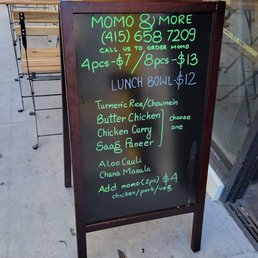 MOMO & MORE
(415) 658 7209
CALL US TO ORDER MOMO
4pcs-$7/8pcs-$13
LUNCH BOWL-$12
Turmeric Rice/Chowmein
Butter Chicken
Chicken Curry
Saag Paneer
choose
one
Aloo Cauli
Chana Masala
Add momo (2pc) $4
chicken/pork/veg